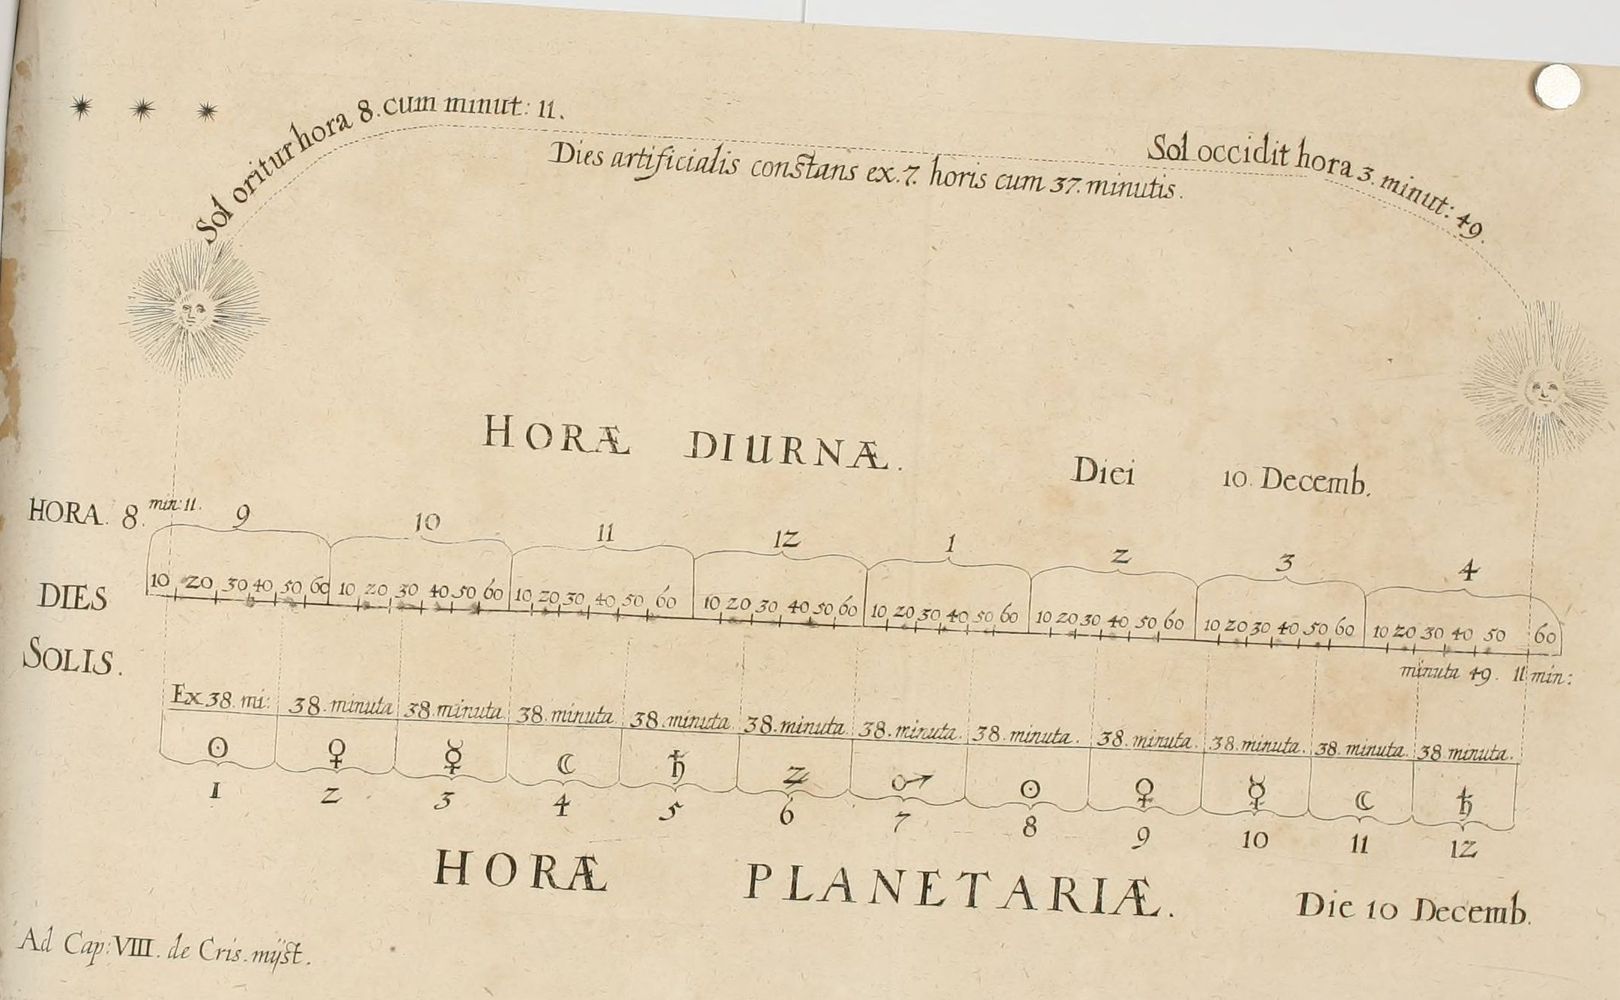 Sol oritur hora 8. cum minut: 11.
Sol occidit hora 3. minut: 49.
Dies artificialis constans ex. 7. horis cum 37. minutis.
HORÆ DIURNÆ. Diei 10. Decemb.
HORA. 8. min: 11. 9 10 11 12 1 2 3 4
DIES 10 20 30 40 50 60 10 20 30 40 50 60 10 20 30 40 50 60 10 20 30 40 50 60 10 20 30 40 50 60 10 20 30 40 50 60 10 20 30 40 50 60 10 20 30 40 50 60
SOLIS.
minuta 49. 11 min:
Ex 38. mi: 38. minuta 38. minuta 38. minuta. 38. minuta 38. minuta. 38. minuta. 38. minuta. 38. minuta. 38. minuta. 38. minuta. 38 minuta.
☉ ♀ ☿ ☾ ♄ ♃ ♂ ☉ ♀ ☿ ☾ ♄
1 2 3 4 5 6 7 8 9 10 11 12
HORÆ PLANETARIÆ. Die 10 Decemb.
Ad Cap: VIII. de Cris. mÿst.